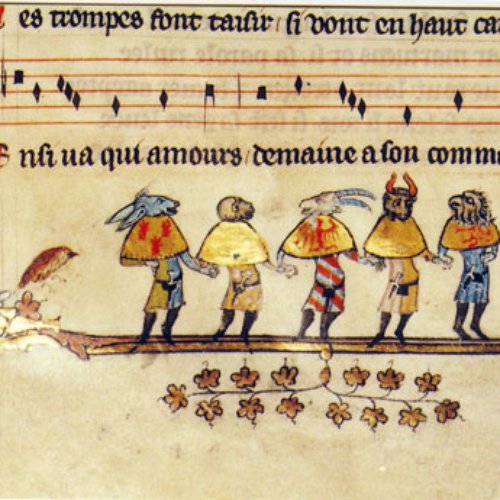 es trompes font taisir si vont en haut ca
nsi ua qui amours demaine a son comm